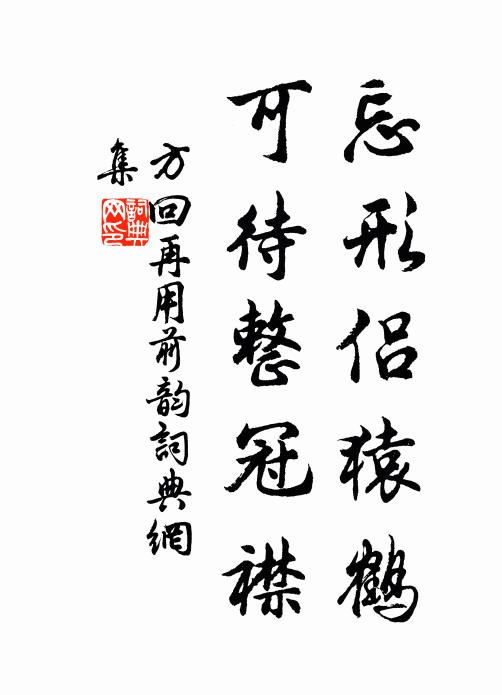 忘形侶猿鶴
可待整冠襟
方回再用前韵詞典網
集
詞典
网印